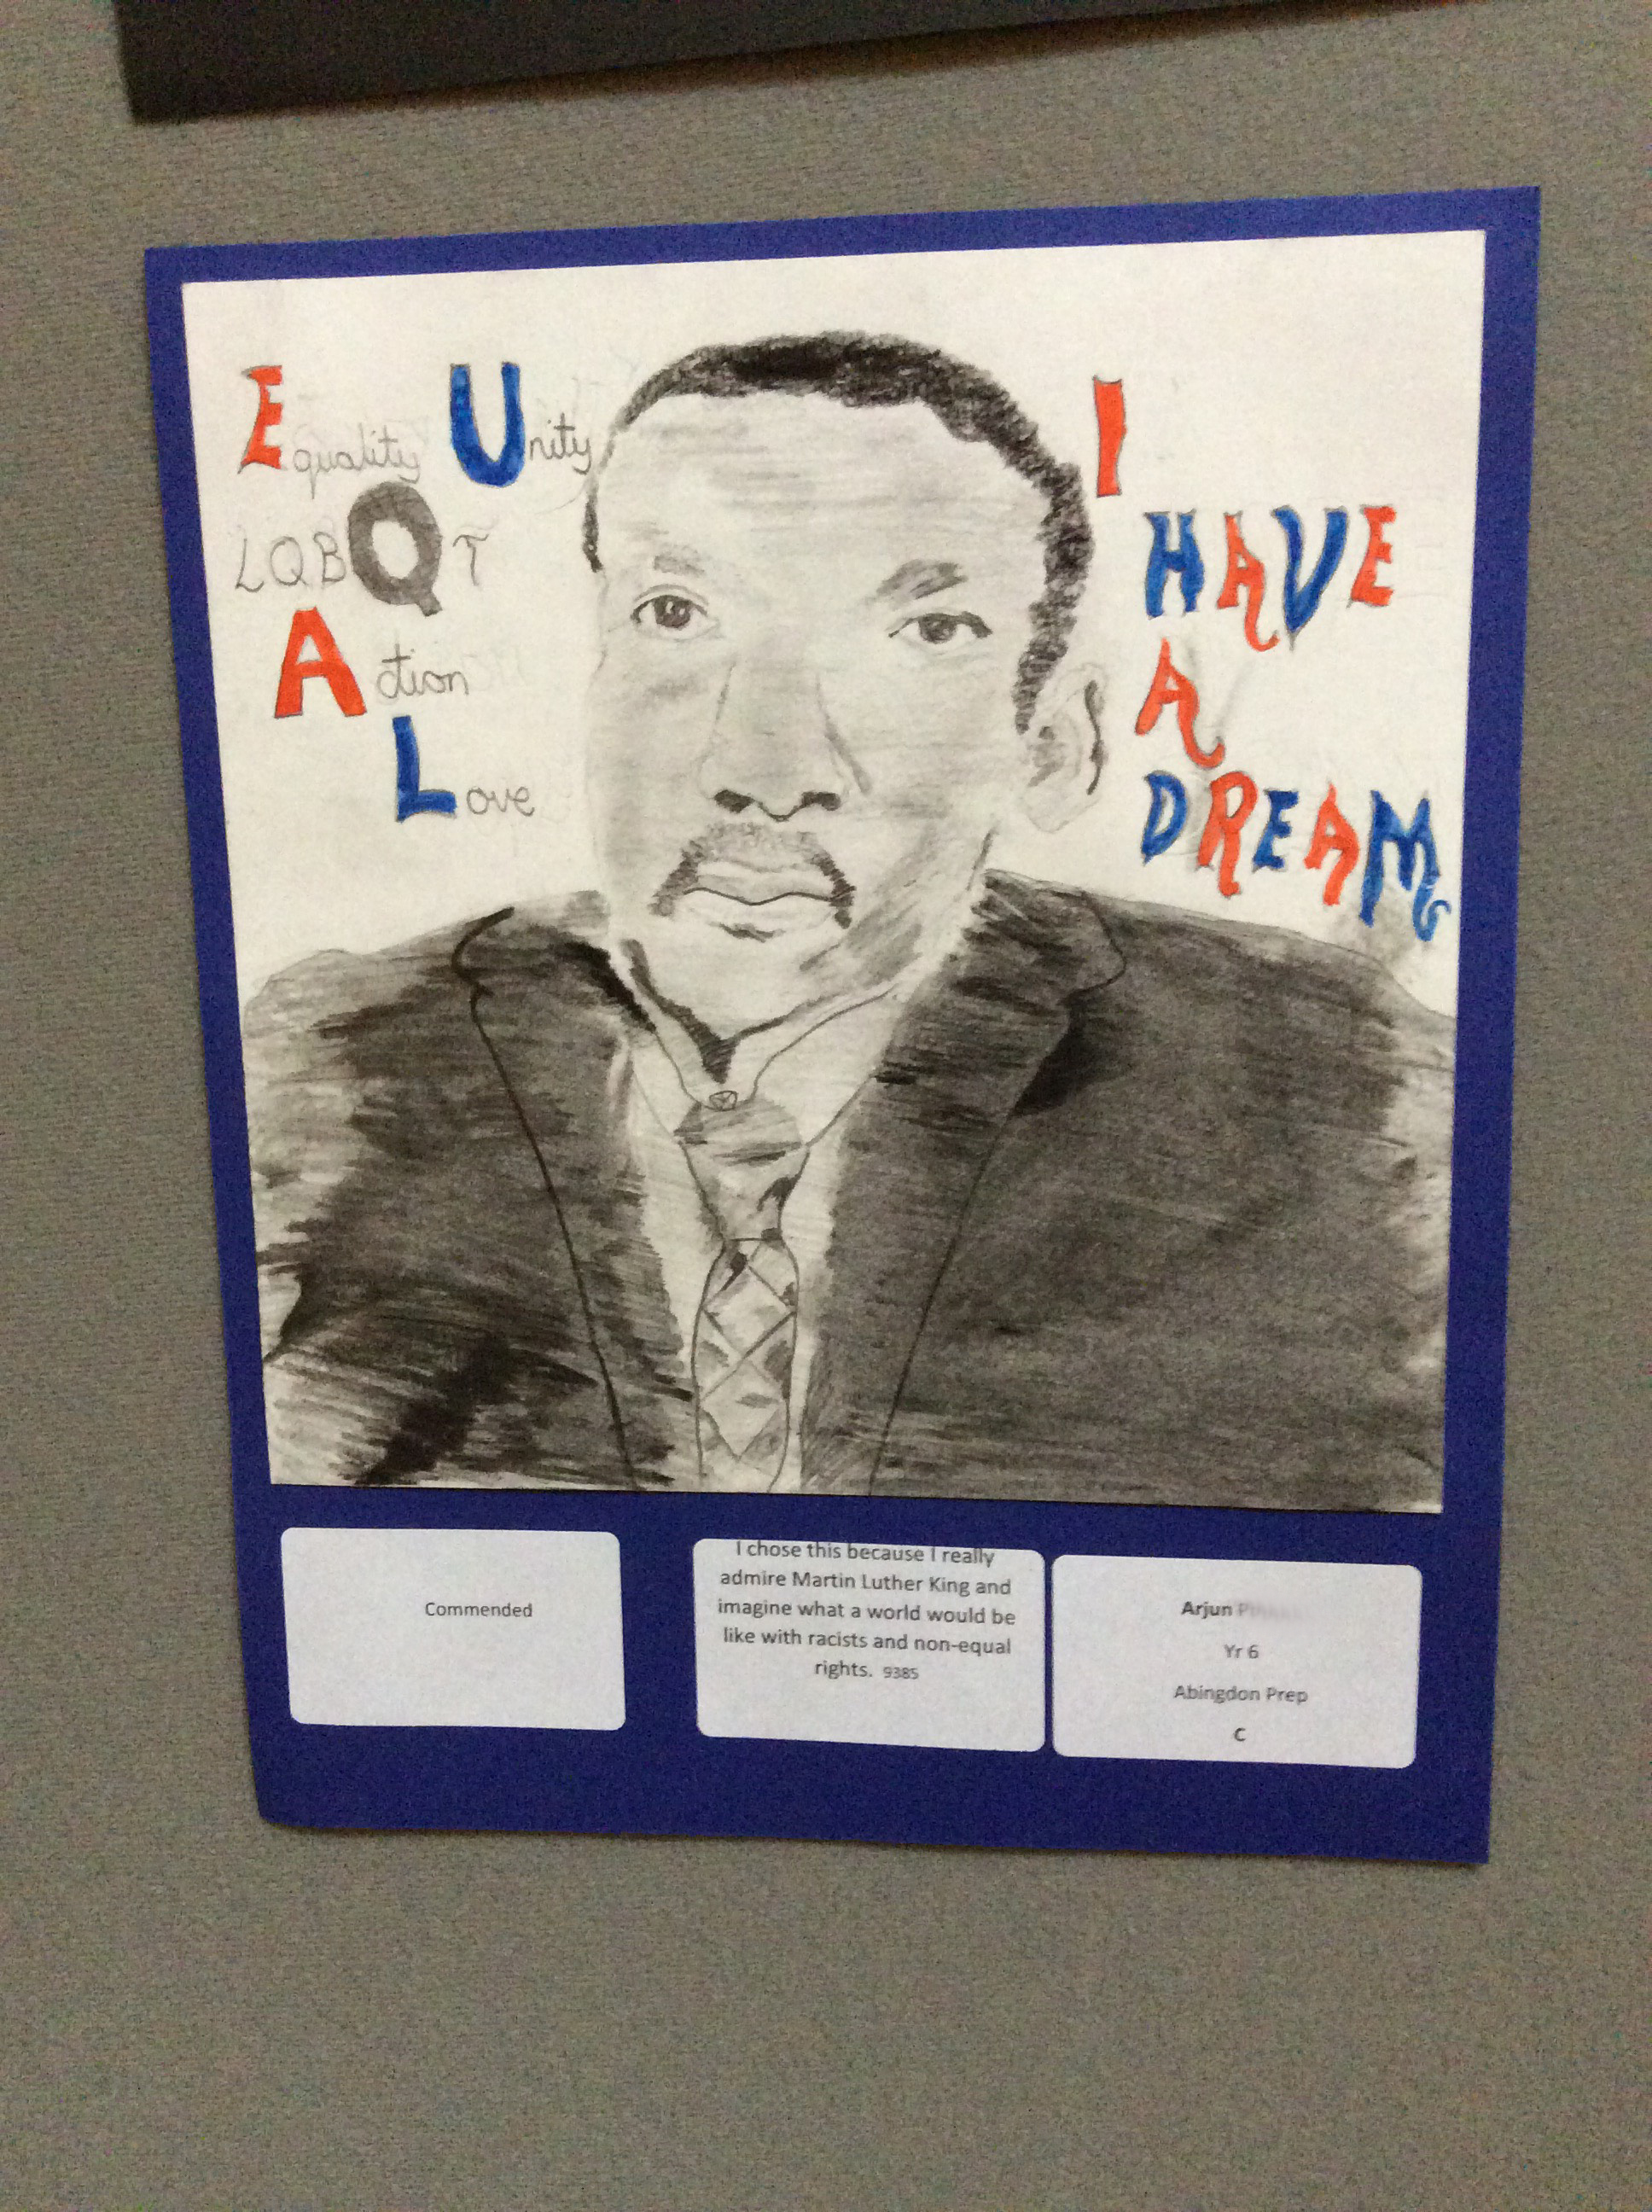 Equality Unity
LQBQT
Action
Love
I
HAVE
A
DREAM
Commended
I chose this because I really
admire Martin Luther King and
imagine what a world would be
like with racists and non-equal
rights. 9385
Arjun
Yr 6
Abingdon Prep
C